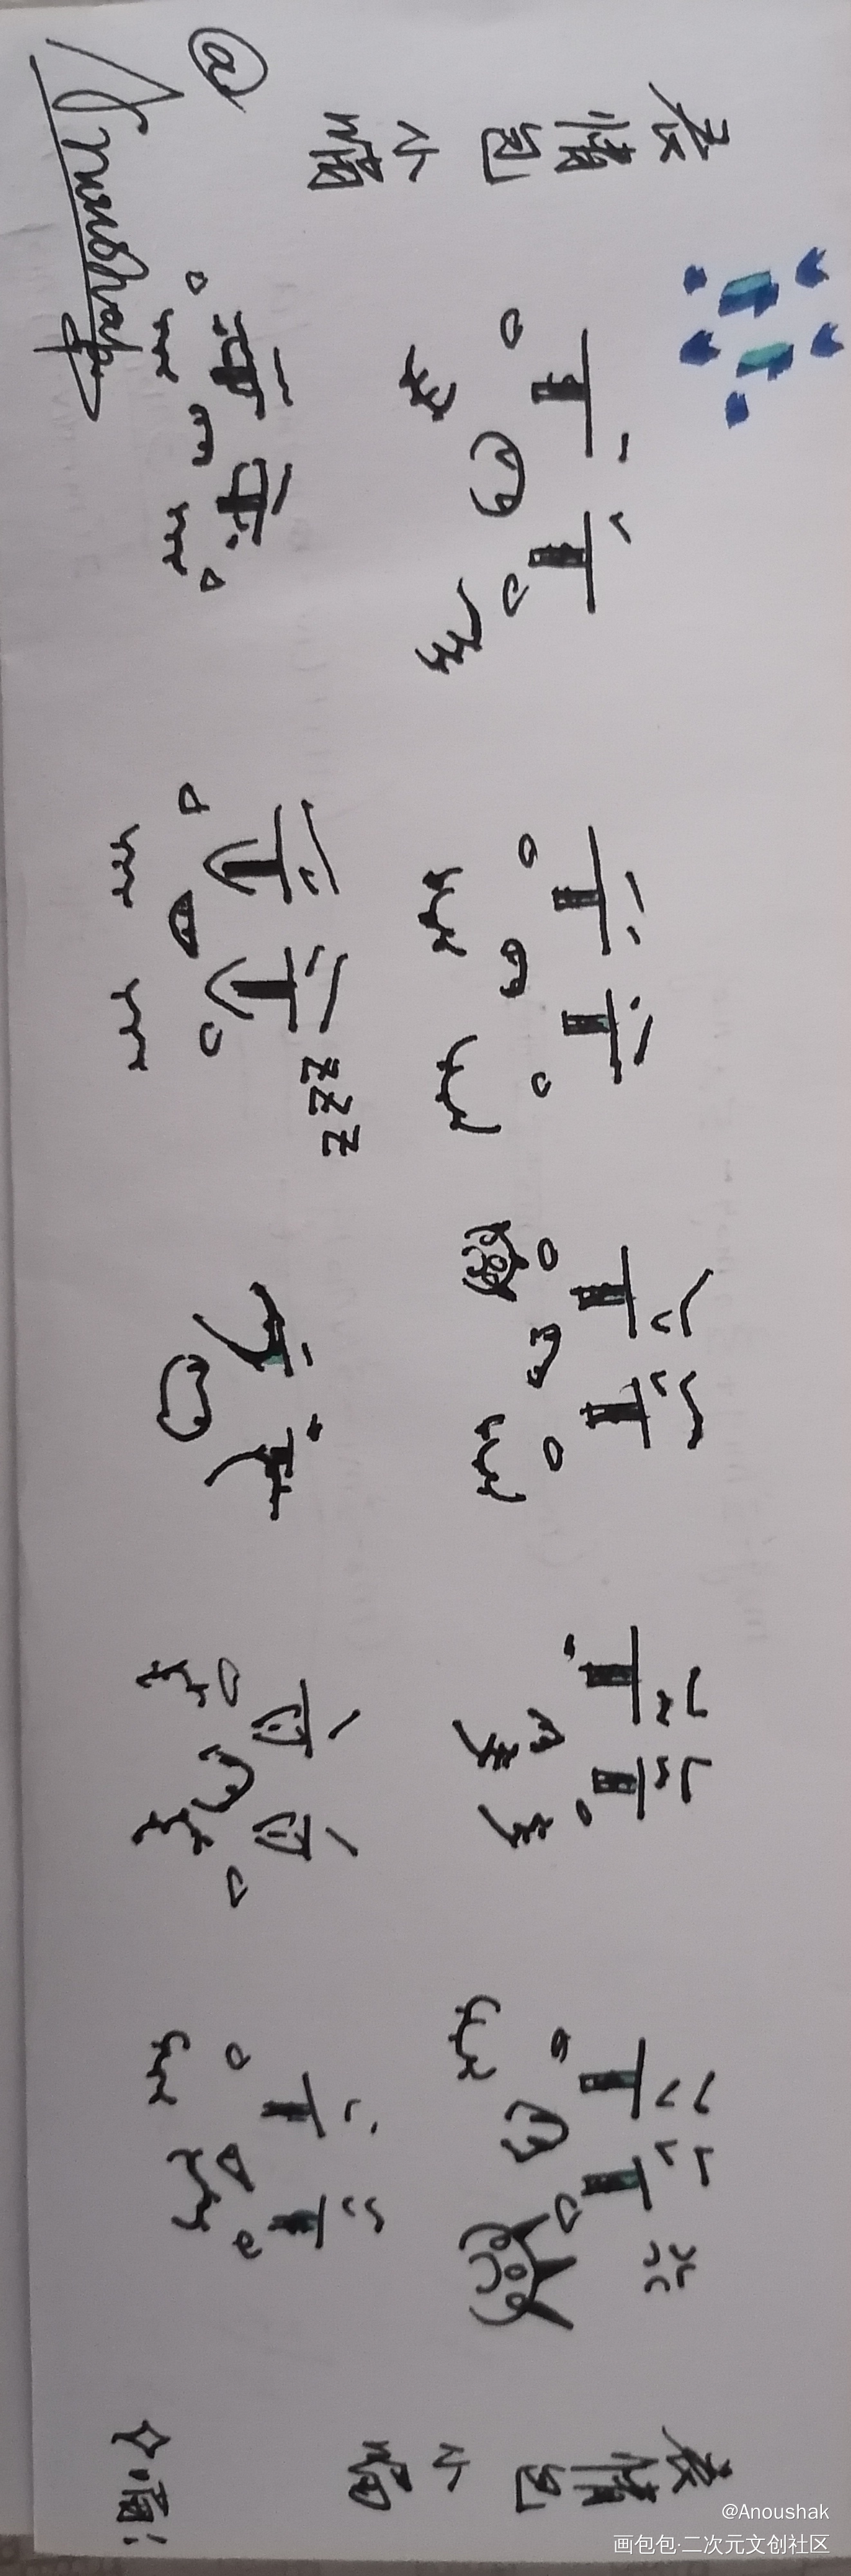 表情包小喵
@Anoushak
zzz
表情包小喵
喵!
@Anoushak
画包包·二次元文创社区